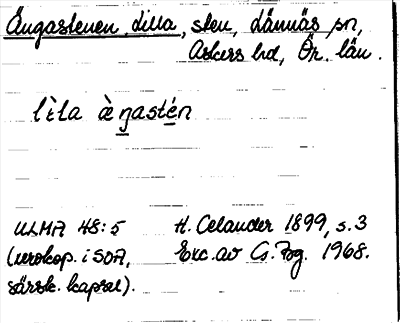 Ängastenen, Lilla, sten, Lännäs sn,
Askers hd, Ör. län.
lìta æ̀ŋastén
ULMA 48:5 H. Celander 1899, s.3
(xerokop. i SOA, Exc. av G. Bg. 1968.
särsk. kapsel).